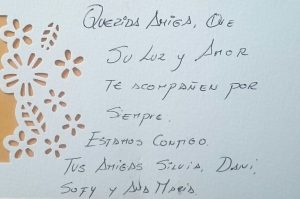 Querida Amiga, Que
Su Luz y Amor
Te acompañen por
Siempre.
Estamos Contigo.
Tus Amigas Silvia, Dani,
Sofy y Ana María